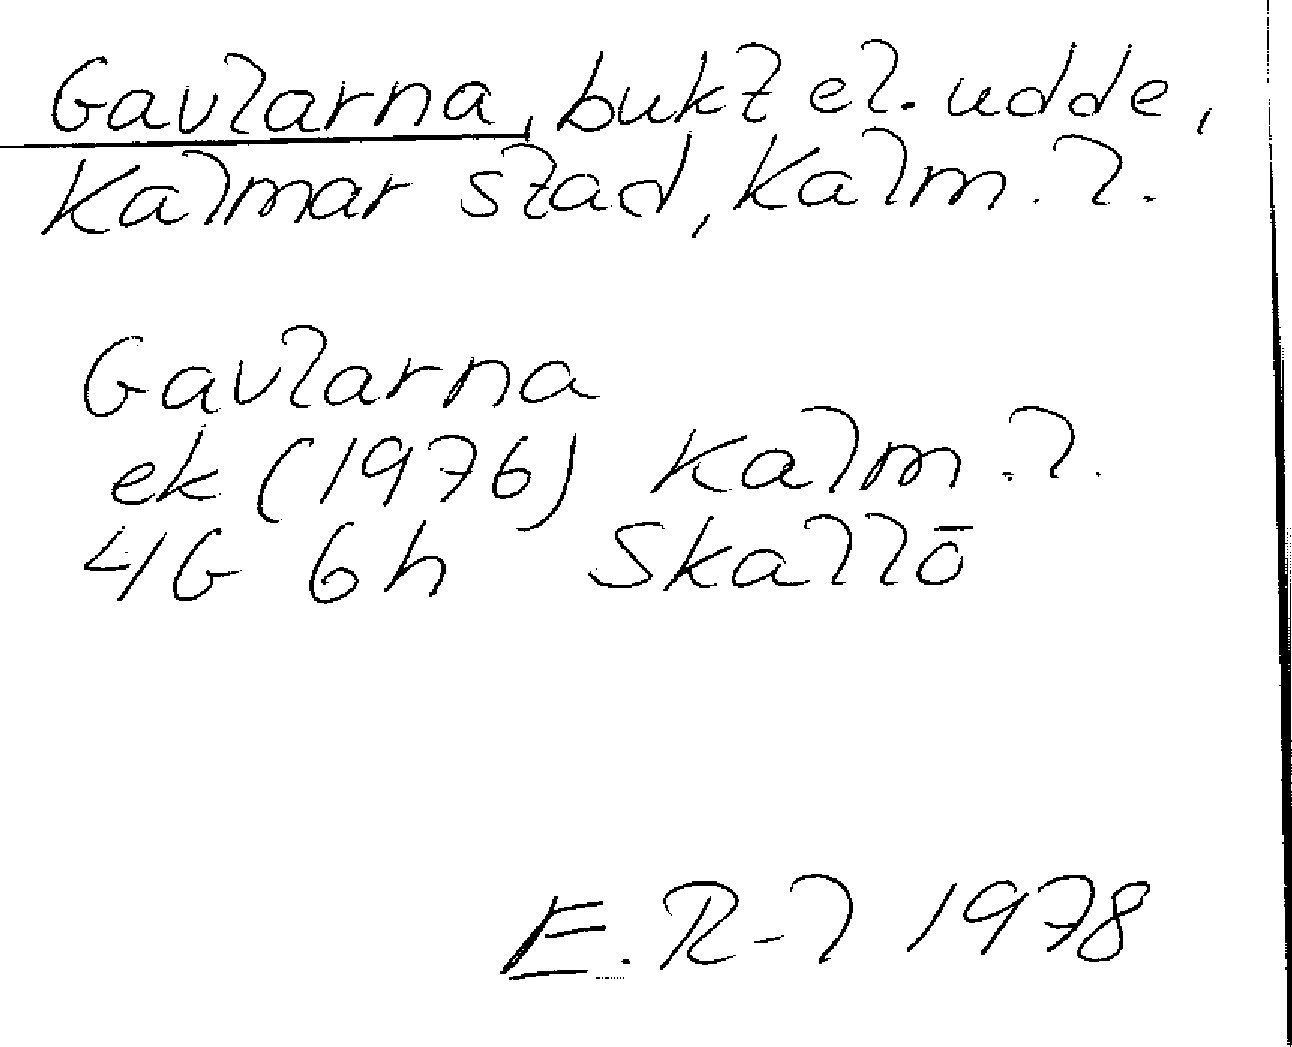 Gavlarna, bukt el. udde,
Kalmar stad, Kalm. l.
Gavlarna
ek (1976) Kalm. l.
4G 6h Skallö
E. R-l 1978